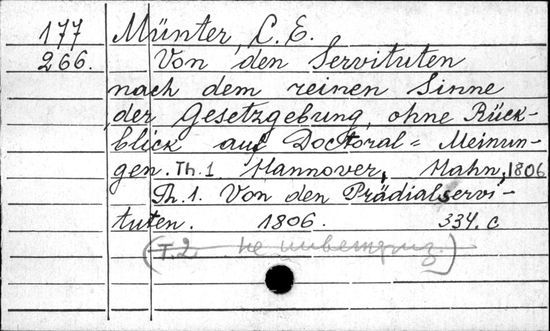 177 Münter, C. E.
266. Von den Servituten
nach dem reinen Sinne
der Gesetzgebung, ohne Rück-
blick auf Doctoral = Meinun-
gen. Th. 1 Hannover, Hahn, 1806
Th. 1. Von den Prädialservi-
tuten. 1806. 334. c
(T. 2 не